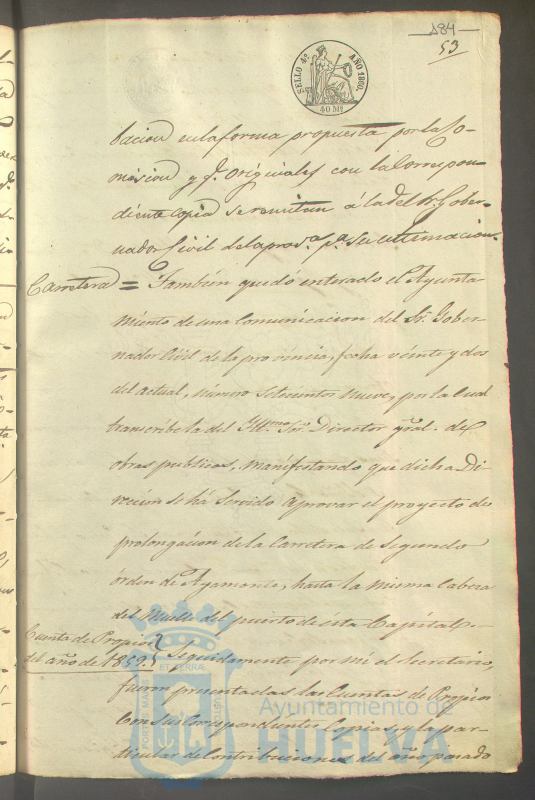 184
53
SELLO 4º AÑO 1860.
40 Ms
bacion en la forma propuesta por la Co-
mision y qe. originales con la correspon-
diente copia se remitan á la del Sr. Gober-
nador Civil de la prova. pa. su ultimacion.
Carretera = Tambien quedó enterado el Ayunta-
miento de una comunicacion del Sr. Gober-
nador Civil de la provincia, fecha veinte y dos
del actual, número setecientos nueve, por la cual
transcribe la del Illmo. Sor. Director gral. de
obras publicas, manifestando que dicha Di-
reccion se há servido aprovar el proyecto de
prolongacion de la Carretera de segundo
órden de Ayamonte, hasta la misma cabeza
del Muelle del puerto de ésta Capital.
Cuenta de Propios
del año de 1859. Seguidamente por mi el Secretario
fueron presentadas las Cuentas de Propios
con sus correspondientes copias, y la par-
ticular de Contribuciones del año pasado
PORTUS MARIS ET TERRAE CUSTODIA
Ayuntamiento de
HUELVA